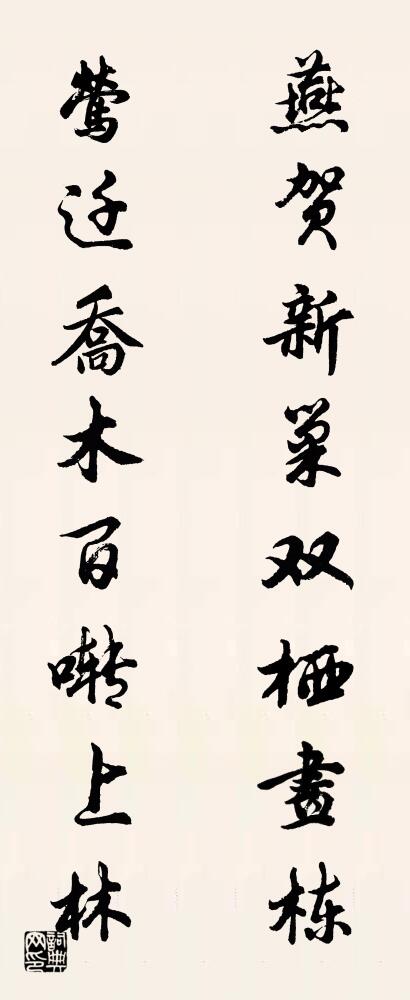 燕贺新巢双栖畫栋
莺迁喬木百啭上林
词典网印